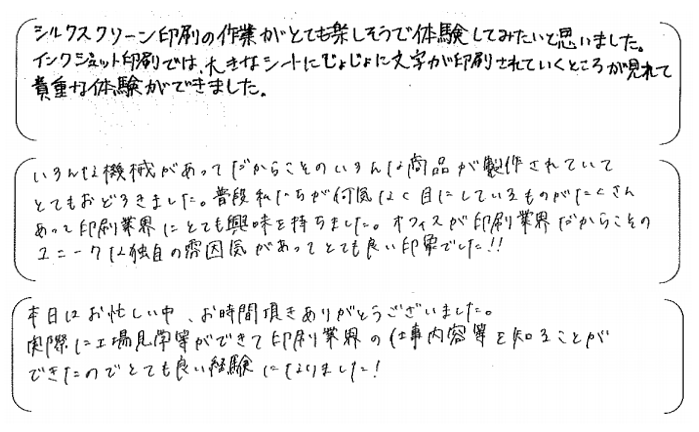 シルクスクリーン印刷の作業がとても楽しそうで体験してみたいと思いました。
インクジェット印刷では、大きなシートにじょじょに文字が印刷されていくところが見れて
貴重な体験ができました。
いろんな機械があってだからこそのいろんな商品が製作されていて
とてもおどろきました。普段私たちが何気なく目にしているものがたくさん
あって印刷業界にとても興味を持ちました。オフィスが印刷業界だからこその
ユニークな独自の雰囲気があってとても良い印象でした!!
本日はお忙しい中、お時間頂きありがとうございました。
実際に工場見学等ができて印刷業界の仕事内容等を知ることが
できたのでとても良い経験になりました!